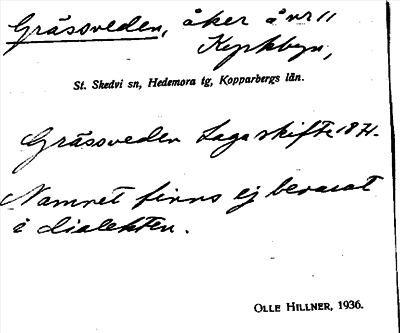 Gräsoveden, åker å nr 11
Kyrkbyn,
St. Skedvi sn, Hedemora tg, Kopparbergs län.
Gräsoveden Laga skifte 1871.
Namnet finns ej bevarat
i dialekten.
OLLE HILLNER, 1936.